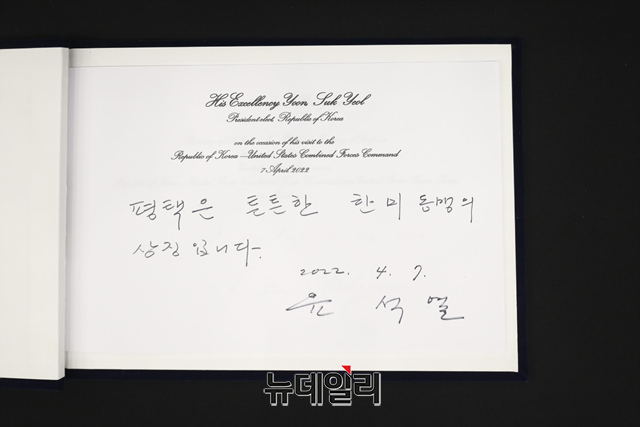 His Excellency Yoon, Suk Yeol
President elect, Republic of Korea
on the occasion of his visit to the
Republic of Korea—United States Combined Forces Command
7 April 2022
평택은 튼튼한 한미동맹의
상징입니다.
2022. 4. 7.
윤 석 열
뉴데일리